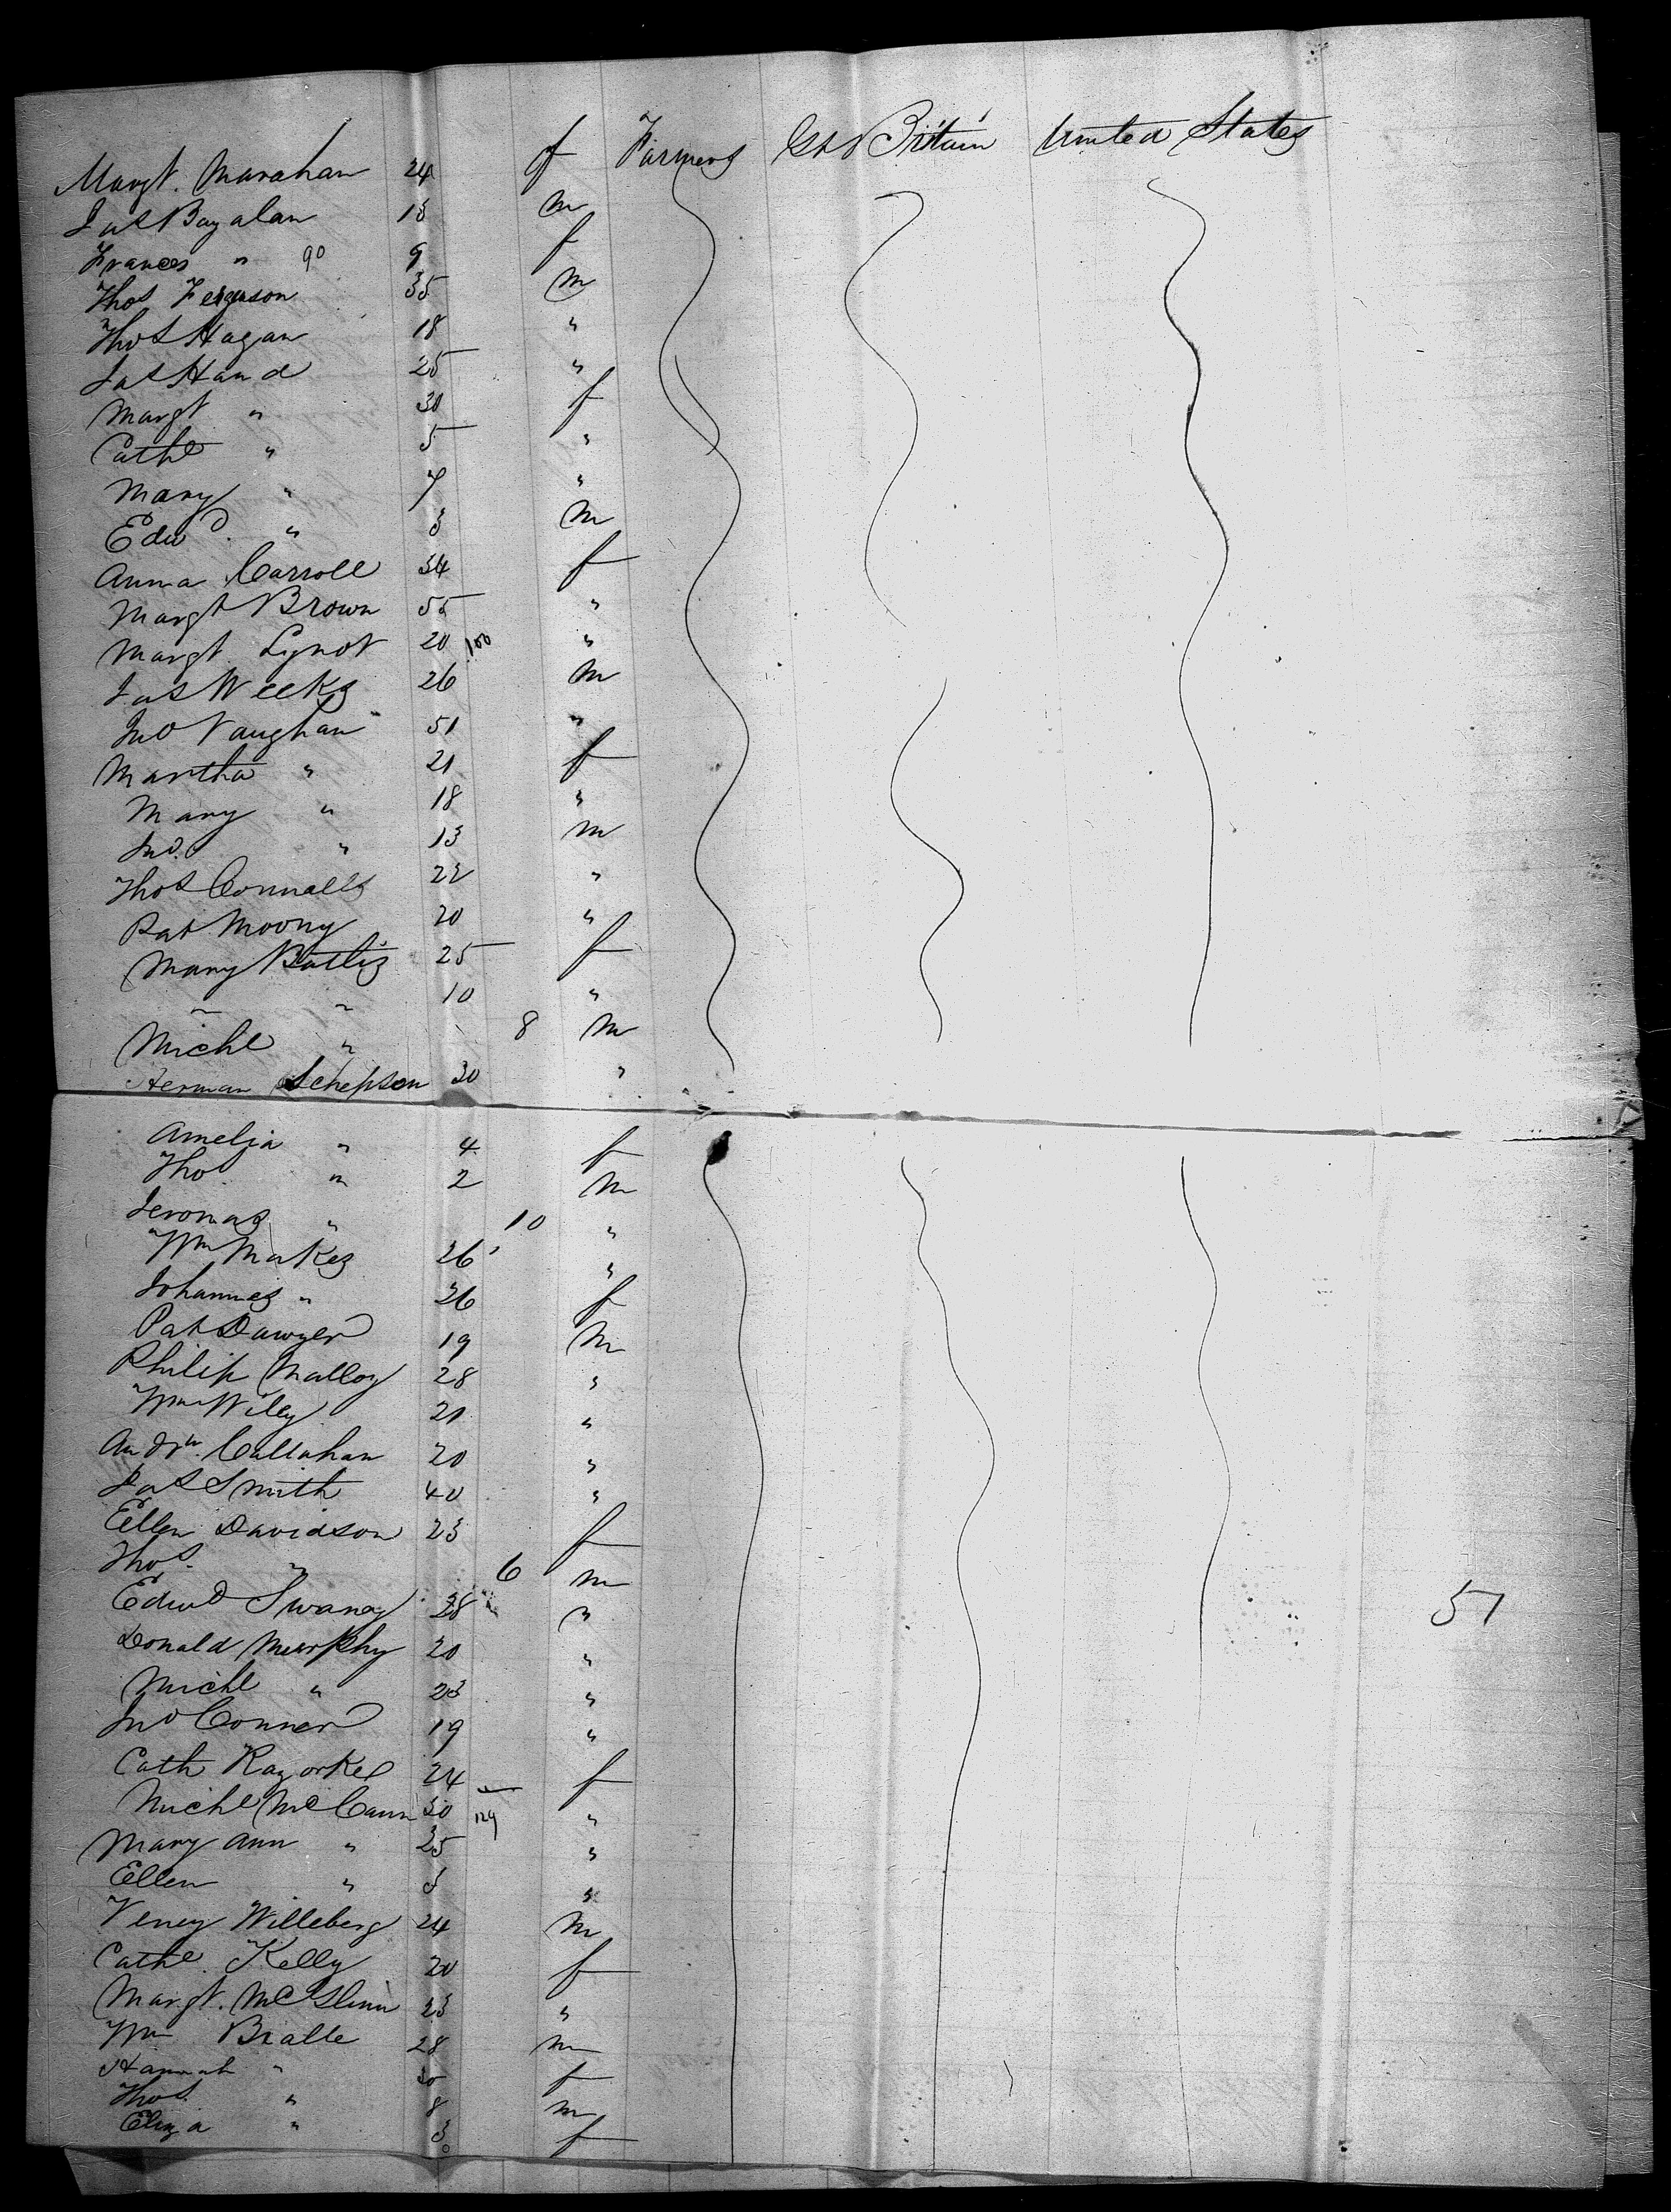 Margt. Marahan 24 f Farmers Gt Britain United States
Jas Bagalan 13 m
Frances " 90 9 f
Thos Ferguson 35 m
Thos Hagan 18 "
Jas Hand 25 "
Margt " 30 f
Cathe " 5 "
Mary " 7 "
Edwd. " 3 m
Anna Carroll 34 f
Margt Brown 55 "
Margt Lynot 20 100 "
Jas Weeks 26 m
Jno Vaughan 51 "
Martha " 21 f
Mary " 18 "
Jno. " 13 m
Thos Connalls 22 "
Pat Moony 20 "
Mary Battis 25 f
" " 10 "
Michl " 8 m
Herman Schepson 30 "
Amelia " 4 f
Thos " 2 m
Jeromas " 10 "
Wm Makes 26 "
Johannes " 26 f
Pat Dawyer 19 m
Philip Malloy 28 "
Wm Wiley 21 "
Andrw. Callahan 20 "
Jas Smith 40 "
Ellen Davidson 23 f
Thos. " 6 m
Edwd Swaney 28 " 51
Donald Murphy 20 "
Michl " 23 "
Jno Conner 19 "
Cath Razorkel 24 f
Michl McCann 30 124 "
Mary Ann " 25 "
Ellen " "
Veney Willeberg 24 m
Cathe. Kelly 20 f
Margt. McGlinn 23 "
Wm Bialle 28 m
Hannah " 30 f
Thos. " 8 m
Eliza " 3 f